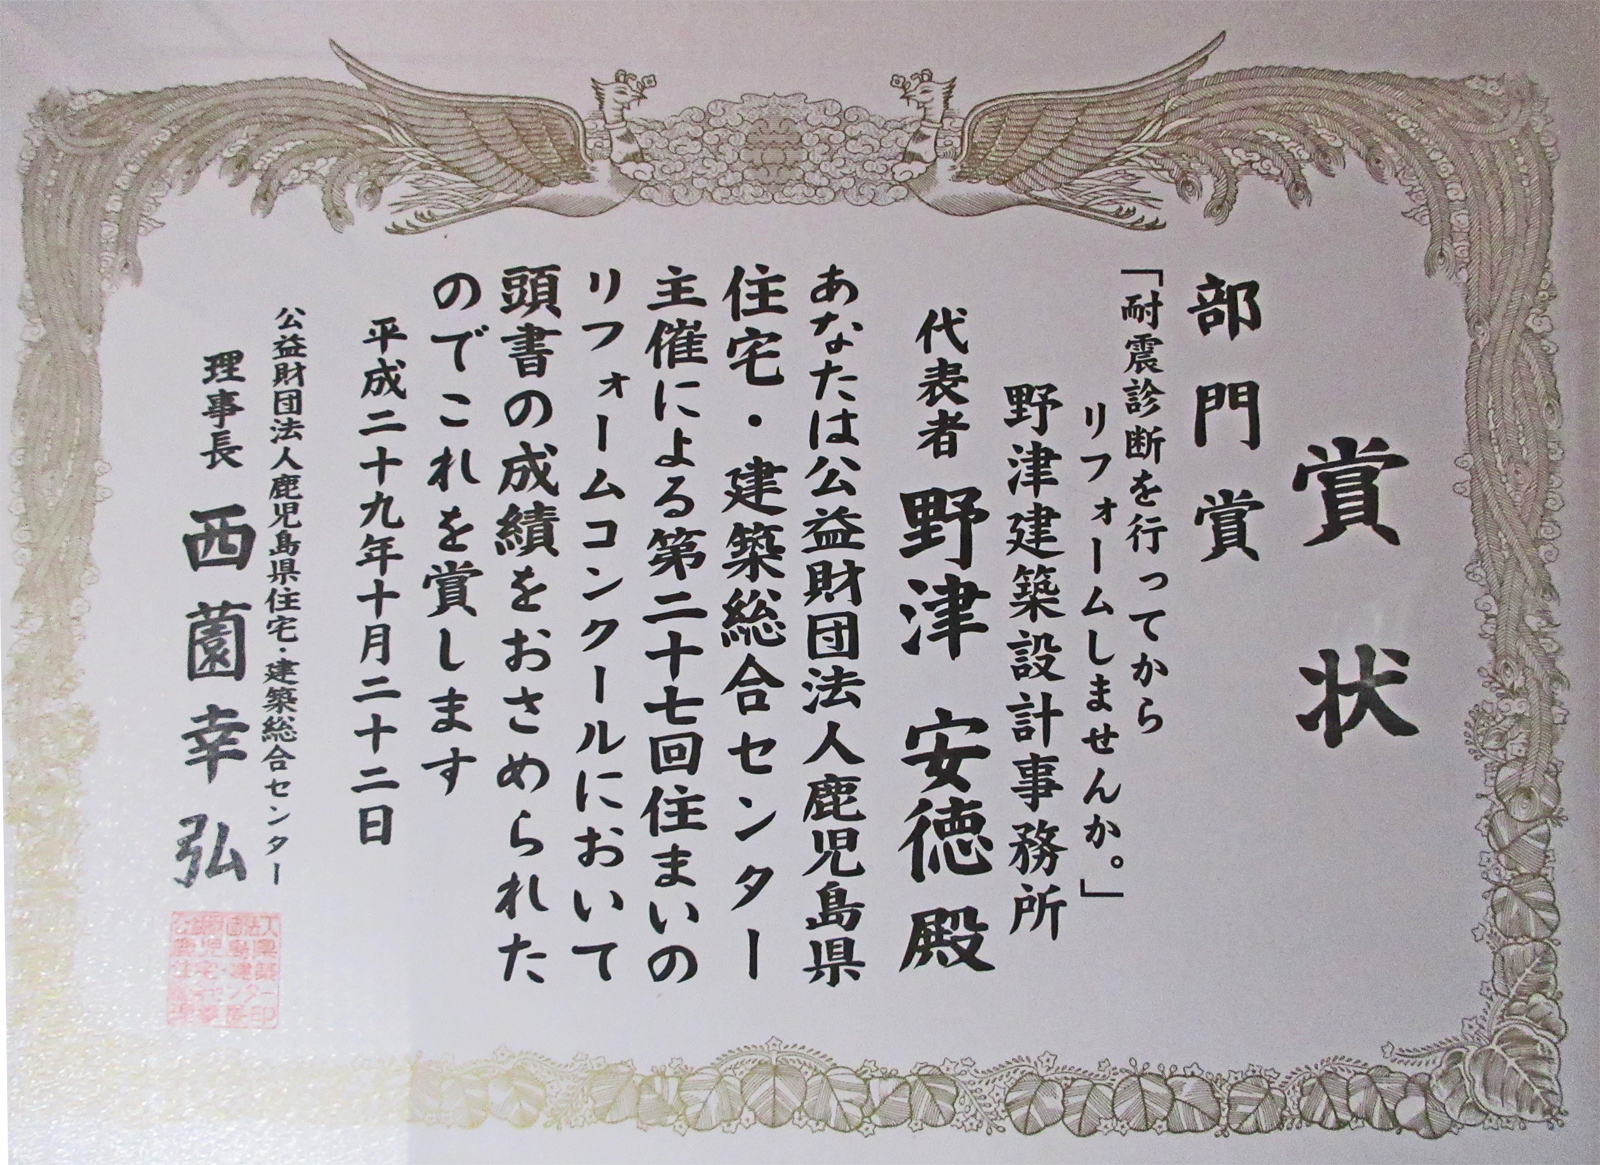 賞状
部門賞
「耐震診断を行ってから
リフォームしませんか。」
野津建築設計事務所
代表者 野津 安徳 殿
あなたは公益財団法人鹿児島県
住宅・建築総合センター
主催による第二十七回住まいの
リフォームコンクールにおいて
頭書の成績をおさめられた
のでこれを賞します
平成二十九年十月二十二日
公益財団法人鹿児島県住宅・建築総合センター
理事長 西薗幸弘